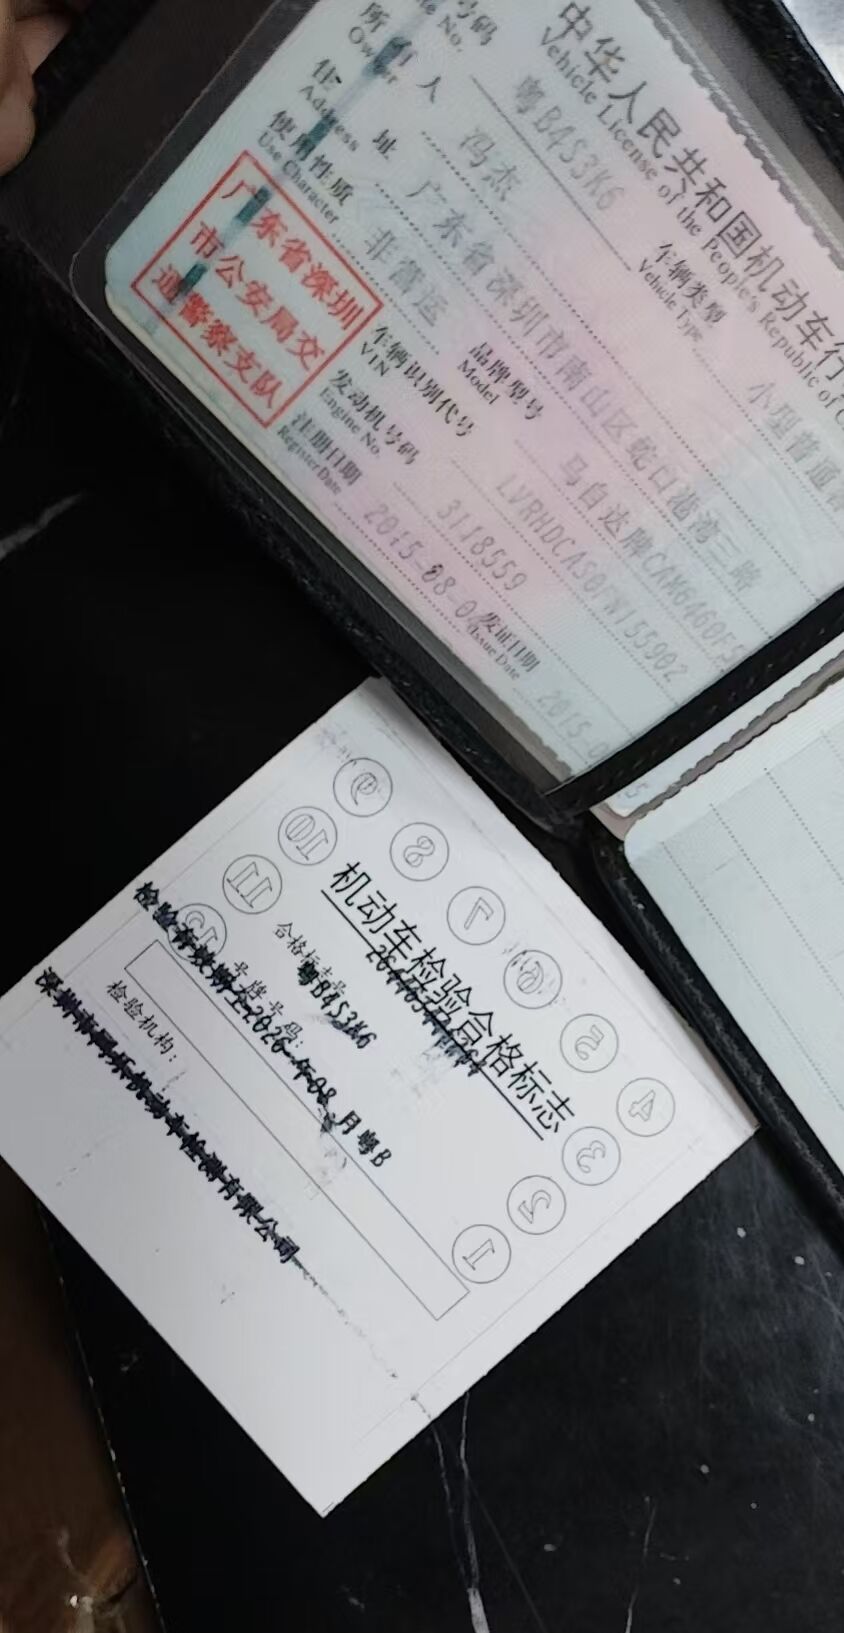 中华人民共和国机动车行
Vehicle License of the People's Republic of C
号码
No.
粤B4S3K6
车辆类型
Vehicle Type
小型普通
所有人
Owner
冯杰
住址
Address
广东省深圳市南山区蛇口港湾三路
使用性质
Use Character
非营运
品牌型号
Model
马自达牌CAM6460F5
广东省深圳
市公安局交
通警察支队
车辆识别代号
VIN
发动机号码
Engine No.
3118559
注册日期
Register Date
2015-08-0
发证日期
Issue Date
2015-0
机动车检验合格标志
合格标志号
号牌号码:
粤B4S3K6
检验有效期至2026年08月粤B
检验机构:
机动车检测有限公司
9
10
11
8
7
6
5
4
3
2
1